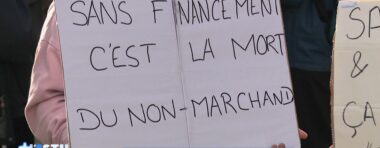 SANS FINANCEMENT
C'EST LA MORT
DU NON-MARCHAND
SA
&
ÇA